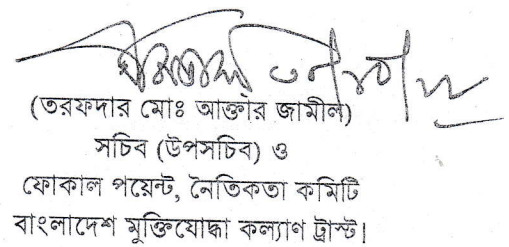 (তরফদার মোঃ আক্তার জামীল)
সচিব (উপসচিব) ও
ফোকাল পয়েন্ট, নৈতিকতা কমিটি
বাংলাদেশ মুক্তিযোদ্ধা কল্যাণ ট্রাস্ট।